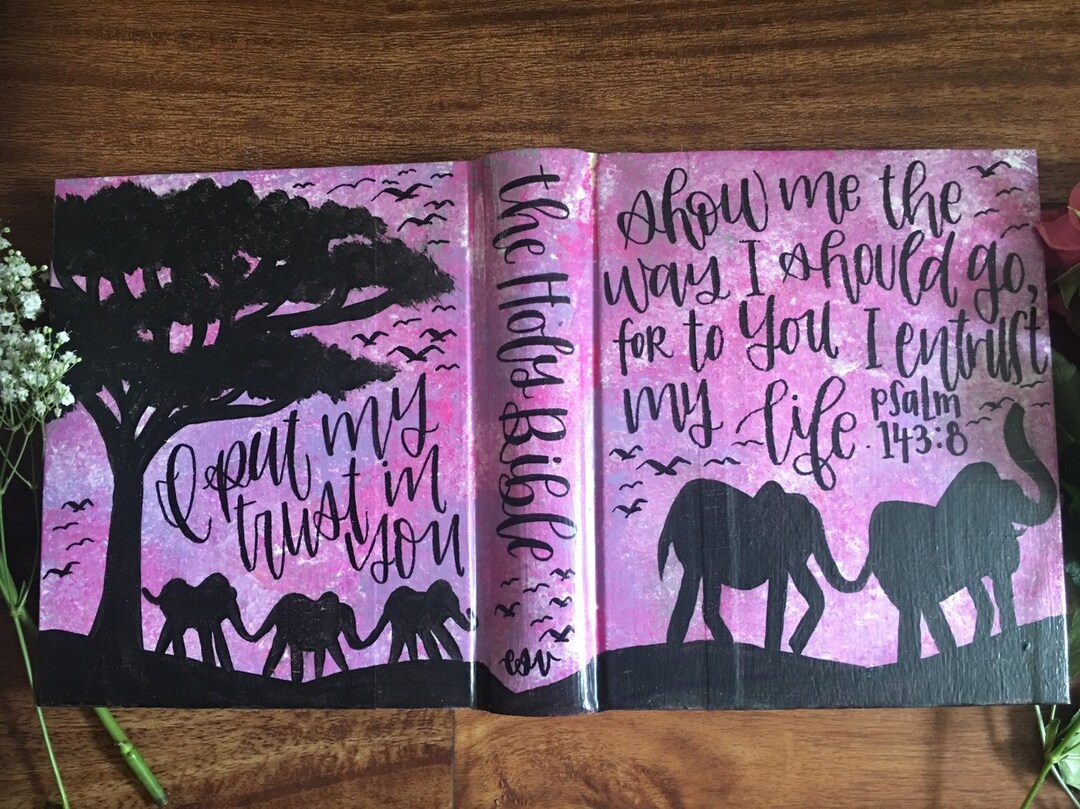 I put my
trust in
you
the Holy Bible
esv
show me the
way I should go,
for to You I entrust
my life.
psalm
143:8